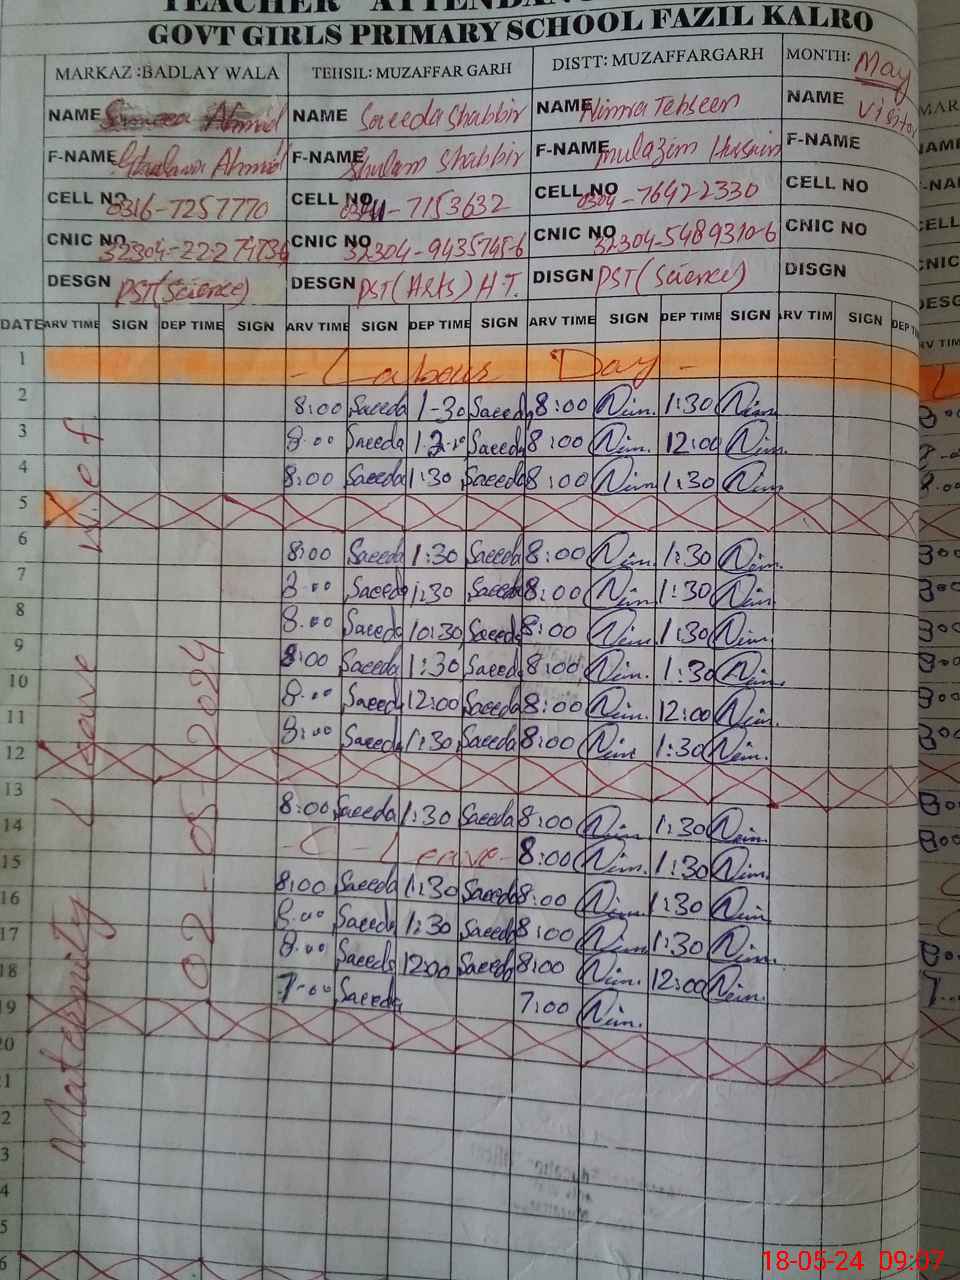 TEACHER ATTENDAN
GOVT GIRLS PRIMARY SCHOOL FAZIL KALRO
MARKAZ :BADLAY WALA TEHSIL: MUZAFFAR GARH DISTT: MUZAFFARGARH MONTH: May
NAME Ahmid NAME Saeeda Shabbir NAME Nimra Tehseen NAME Visitor
F-NAME Ghulam Ahmid F-NAME Ghulam Shabbir F-NAME mulazim Hussain F-NAME
CELL NO 0316-7257770 CELL NO -7153632 CELL NO 0304-76422330 CELL NO
CNIC NO CNIC NO 32304-9435745-6 CNIC NO 32304-5489310-6 CNIC NO
DESGN PST(Science) DESGN PST(Arts) H.T. DISGN PST(Science) DISGN
DATE ARV TIME SIGN DEP TIME SIGN ARV TIME SIGN DEP TIME SIGN ARV TIME SIGN DEP TIME SIGN ARV TIM SIGN DEP T
1 - Labour Day -
2 8:00 Saeeda 1-30 Saeeda 8:00 Nim. 1:30 Nim.
3 8.00 Saeeda Saeeda 8:00 Nim. 12:00 Nim.
4 8:00 Saeeda 1:30 Saeeda 8:00 Nim. 1:30 Nim.
5
6 8:00 Saeeda 1:30 Saeeda 8:00 Nim. 1:30 Nim.
7 8.00 Saeeda 1:30 Saeeda 8:00 Nim. 1:30 Nim.
8 8.00 Saeeda 10:30 Saeeda 8:00 Nim. 1:30 Nim.
9 8:00 Saeeda 1:30 Saeeda 8:00 Nim. 1:30 Nim.
10 8.00 Saeeda 12:00 Saeeda 8:00 Nim. 12:00 Nim.
11 8:00 Saeeda 1:30 Saeeda 8:00 Nim 1:30 Nim.
12
13 8:00 Saeeda 1:30 Saeeda 8:00 Nim. 1:30 Nim.
14 - C-Leave - 8:00 Nim. 1:30 Nim.
15 8:00 Saeeda 1:30 Saeeda 8:00 Nim. 1:30 Nim.
16 8.00 Saeeda 1:30 Saeeda 8:00 Nim. 1:30 Nim.
17 8.00 Saeeda 12:00 Saeeda 8:00 Nim. 12:00 Nim.
18 7-00 Saeeda 7:00 Nim.
19
20
1
2
3
4
5
6
Maternity Leave w.e.f
02-05-2024
18-05-24 09:07